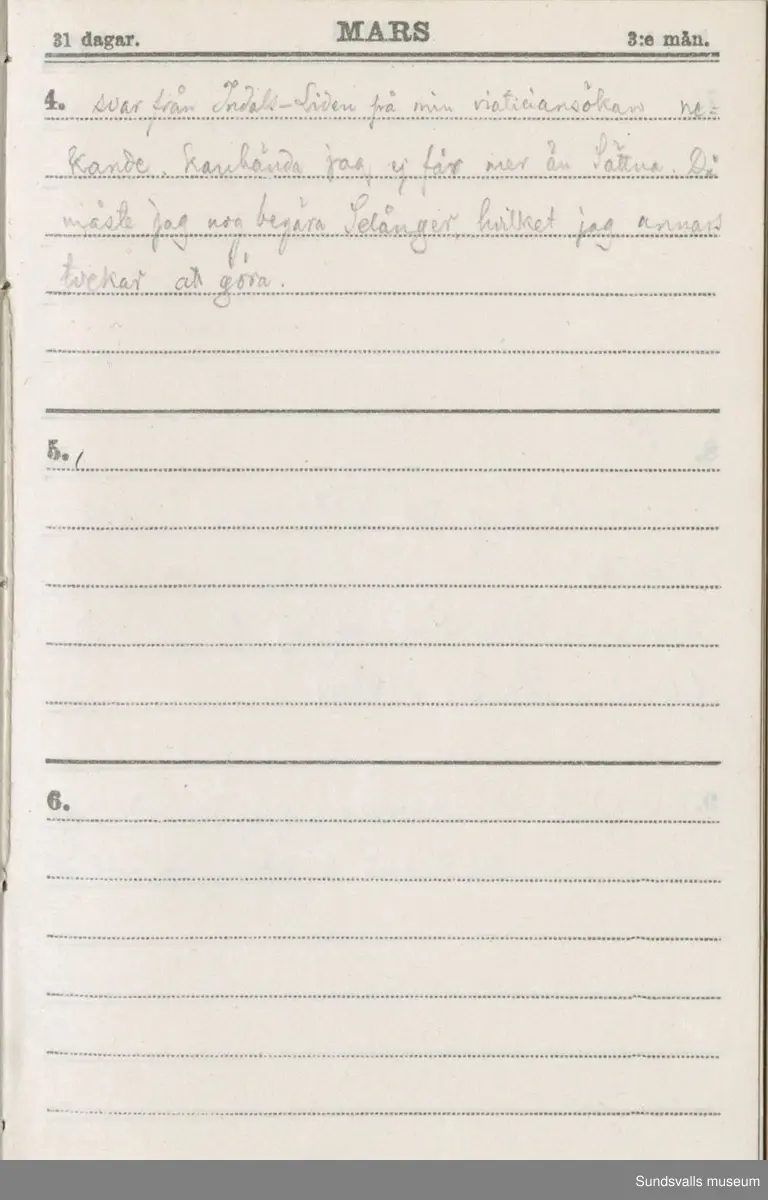 31 dagar. MARS 3:e mån.
4. svar från Indals-Liden på min viaticiansökan ne=
kande. Kanhända jag ej får mer än Sättna. Då
måste jag nog begära Selånger, hvilket jag annars
tvekar att göra.
5.
6.
Sundsvalls museum